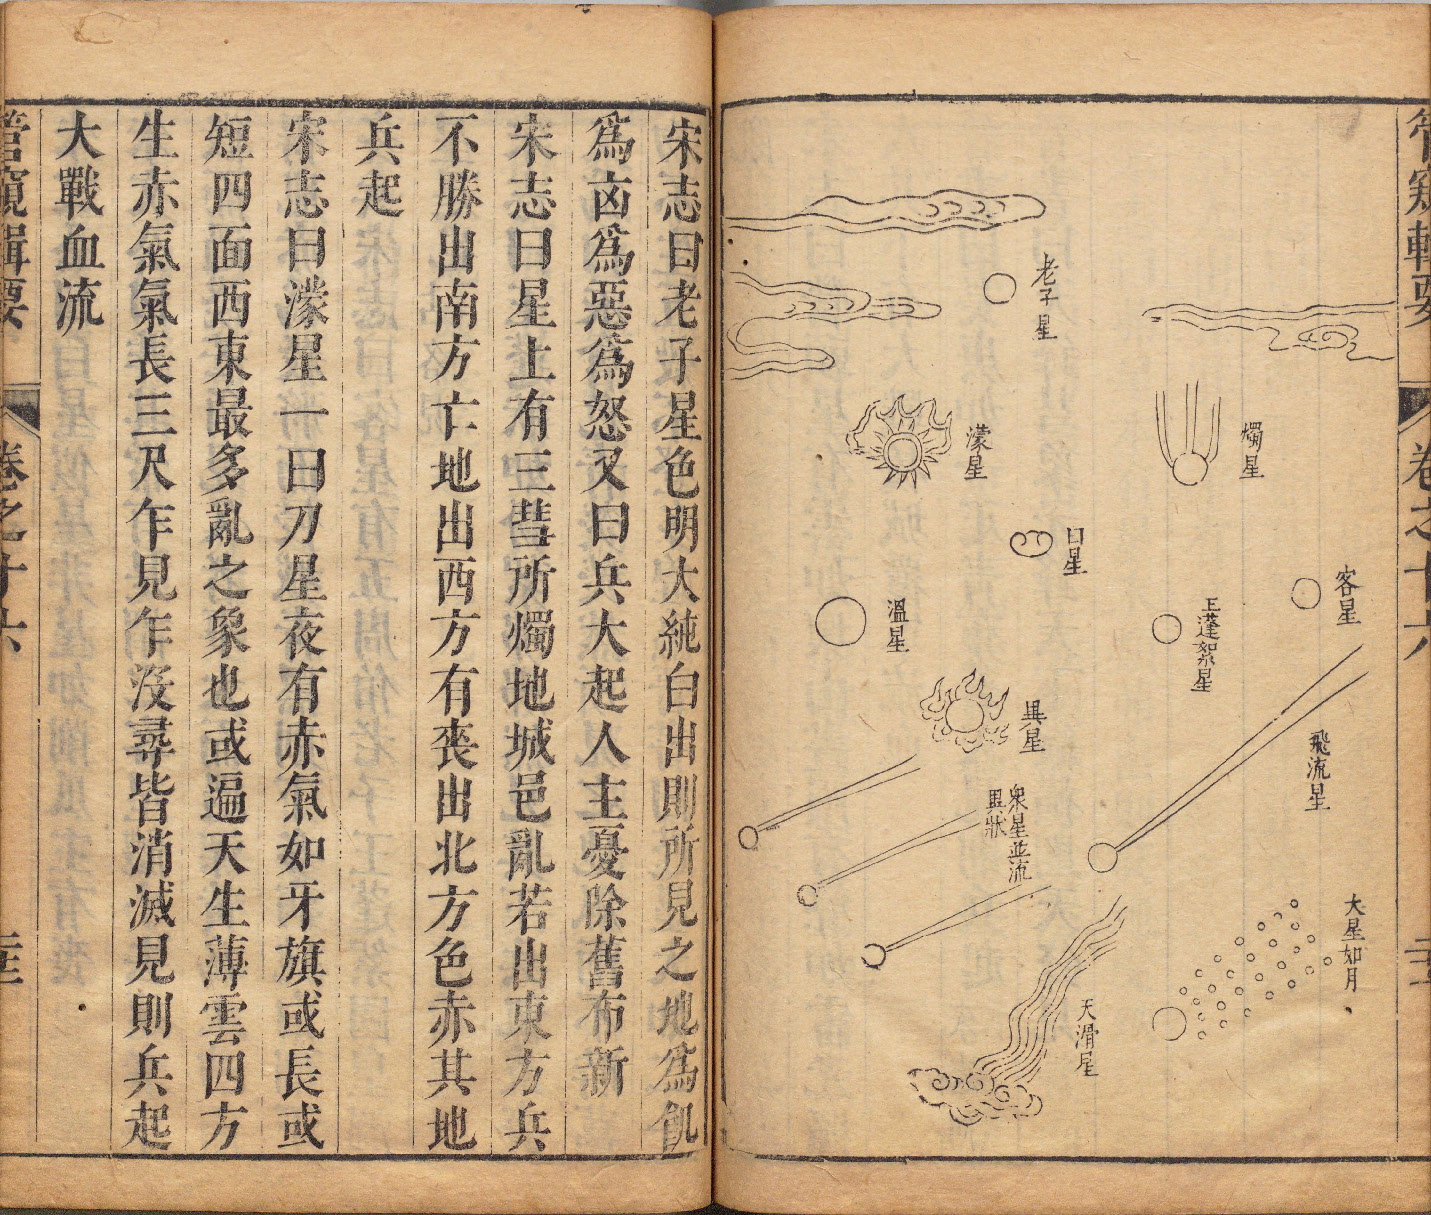 管窺輯要
卷之十六
老子星
濛星
燭星
曰星
溫星
客星
王蓬絮星
異星
飛流星
衆星並流
異狀
大星如月
天滑星
宋志曰老子星色明大純白出則所見之地爲飢
爲凶爲惡爲怒又曰兵大起人主憂除舊布新
宋志曰星上有三彗所燭地城邑亂若出東方兵
不勝出南方亡地出西方有喪出北方色赤其地
兵起
宋志曰濛星一曰刀星夜有赤氣如牙旗或長或
短四面西東最多亂之象也或遍天生薄雲四方
生赤氣氣長三尺乍見乍沒尋皆消滅見則兵起
大戰血流
管窺輯要
卷之十六